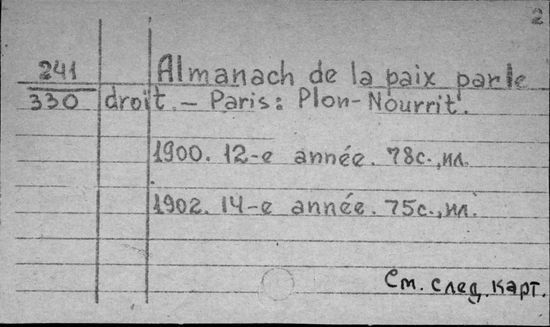 2
241
330
Almanach de la paix par le
droit. – Paris: Plon-Nourrit.
1900. 12-e année. 78с., ил.
1902. 14-e année. 75с., ил.
См. след. карт.